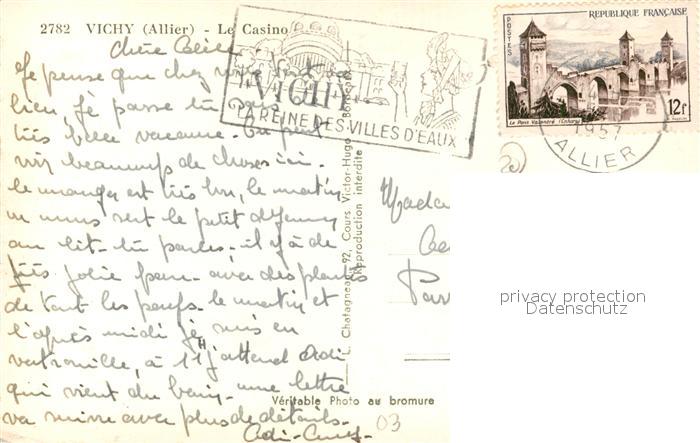 2782 VICHY (Allier) - Le Casino
Chère
Je pense que chez vous tout va
bien, je passe
très vacances. On peut
voir beaucoup de choses ici.
le manger est très bon, le matin
on nous sert le petit
au lit - parcs - il y a de
très jolie parc - avec des plantes
de tout les le matin et
l'après midi je suis en
vadrouille, à 11 H j'attend
qui vient du bain - une lettre
va suivre avec plus de détails.
VICHY
LA REINE DES VILLES D'EAUX
POSTES
REPUBLIQUE FRANÇAISE
12F
Le Pont Valentré (Cahors)
1957
ALLIER
L. Chatagneau, 92, Cours Victor-Hugo - Bordeaux
Reproduction interdite
Véritable Photo au bromure
Mada
Par
03
privacy protection
Datenschutz